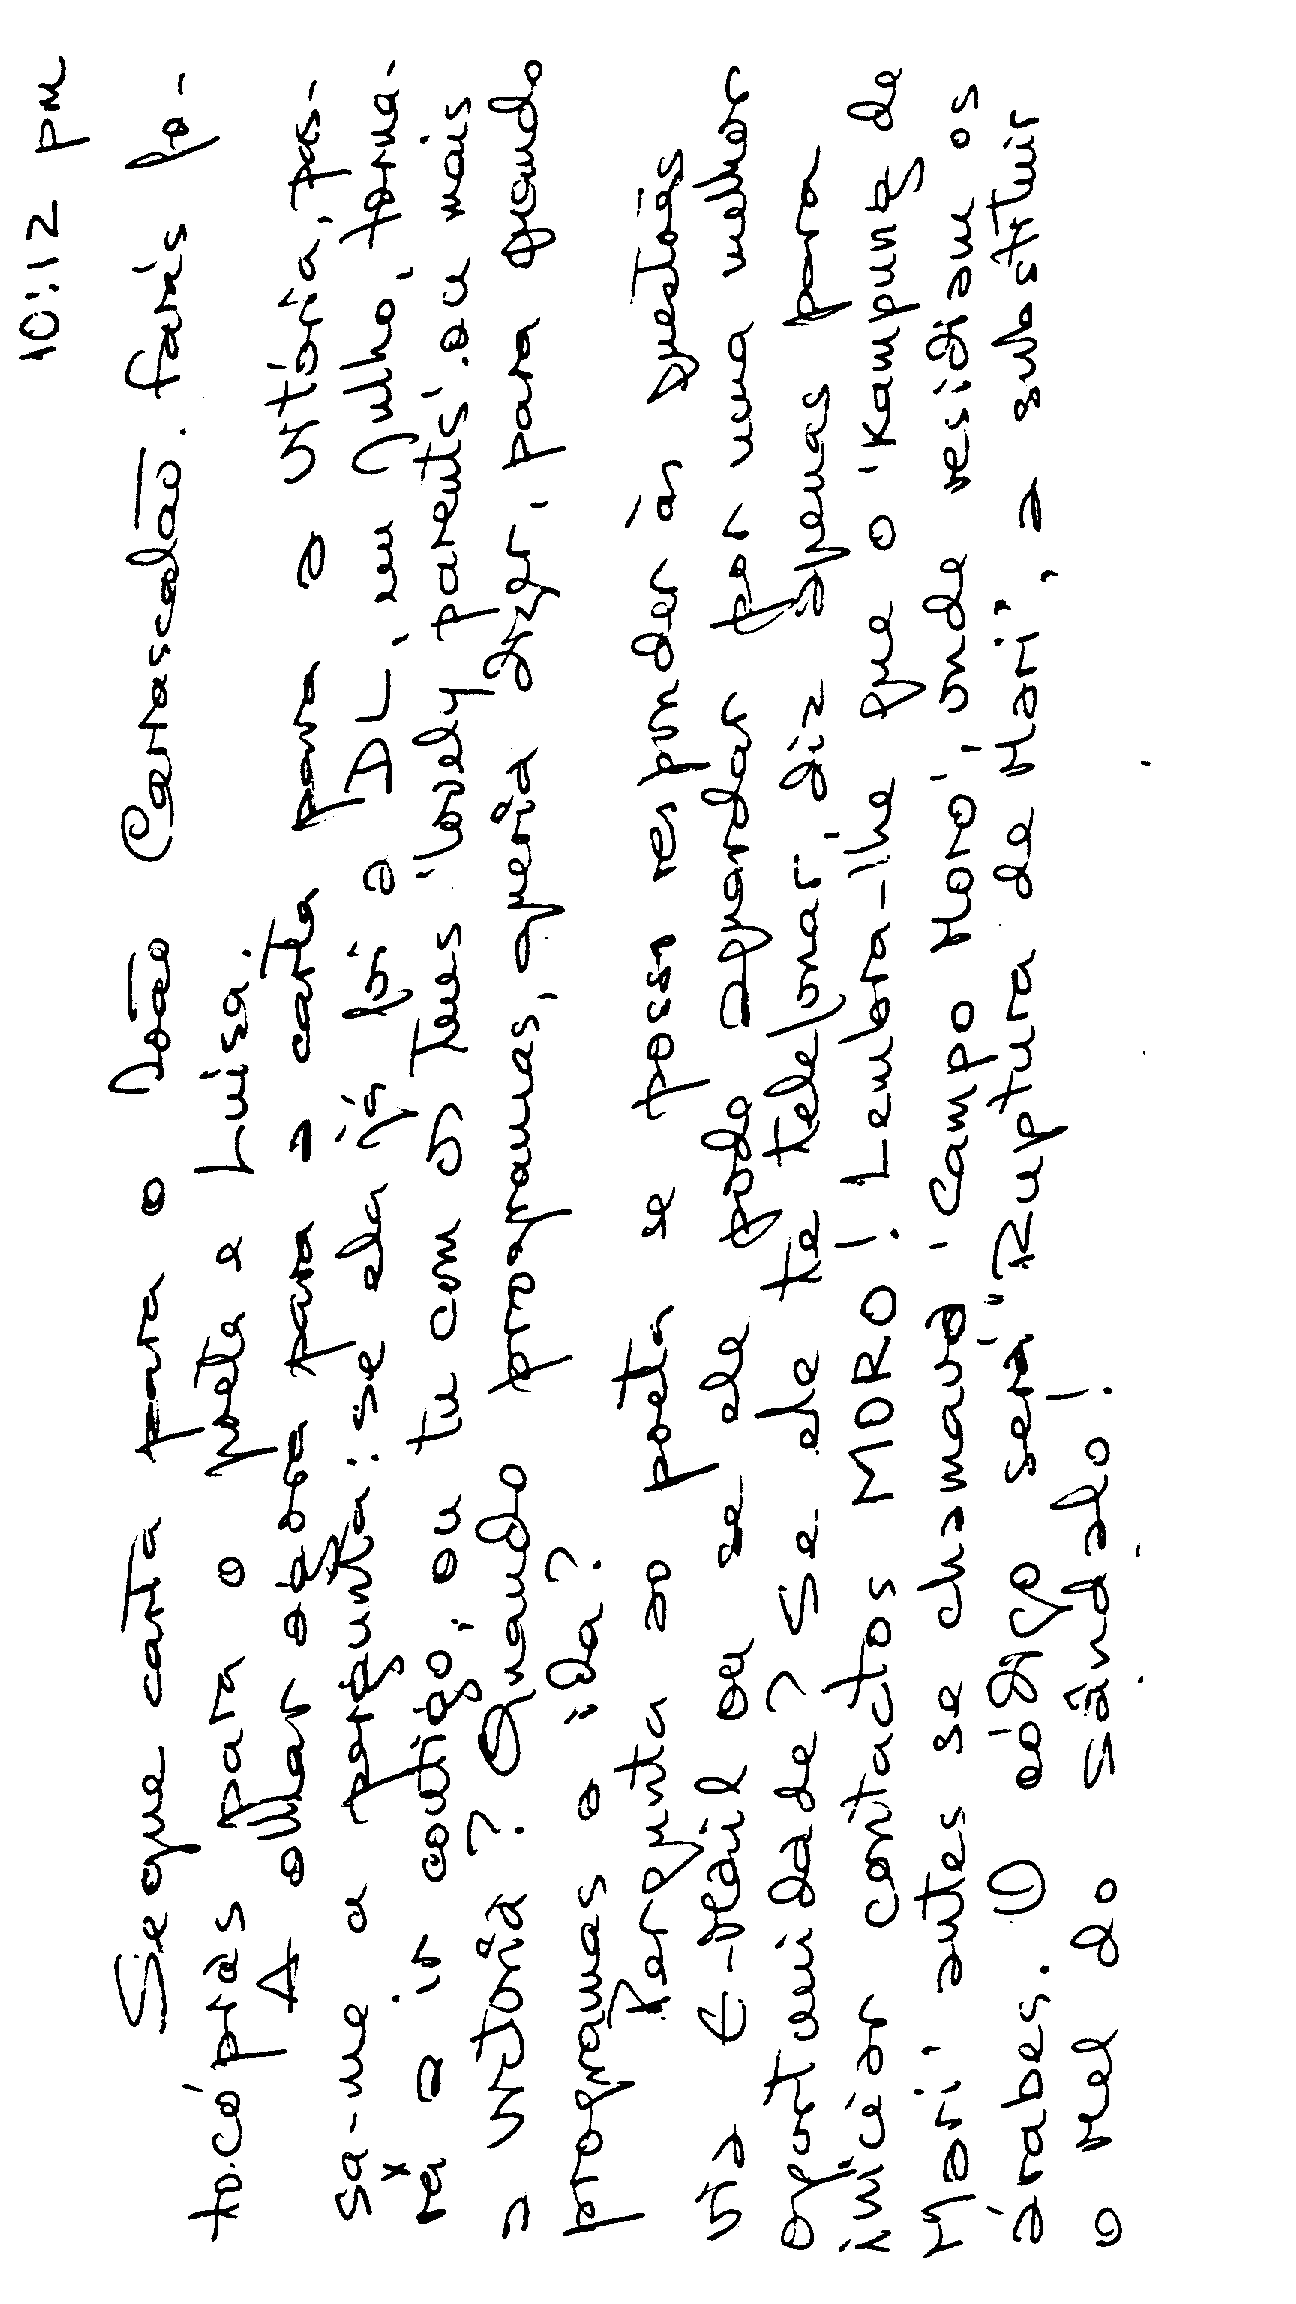 10:12 pm
Segue carta para o João Carrascalão. Farás fo-
tocópias para o neto e Luisa.
A olhar agora para a carta para a Vitória, pas-
sa-me a pergunta: se ela já foi a DL, em Julho, torna-
rá a ir contigo, ou tu com os teus "lovely parents" ou mais
a Vitória? Quando programas, queria dizer, para quando
programas a ida?
Pergunta ao poeta se posso responder às questões
via E-Mail ou se ele pode aguardar por uma melhor
oportunidade? Se ele te telefonar, diz apenas para
iniciar contactos MORO! Lembra-lhe que o 'Kampung de
Mari' antes se chamava 'Campo Moro', onde residiam os
árabes. O código será "Ruptura de Mari", a substituir
o Mel do Sândalo!